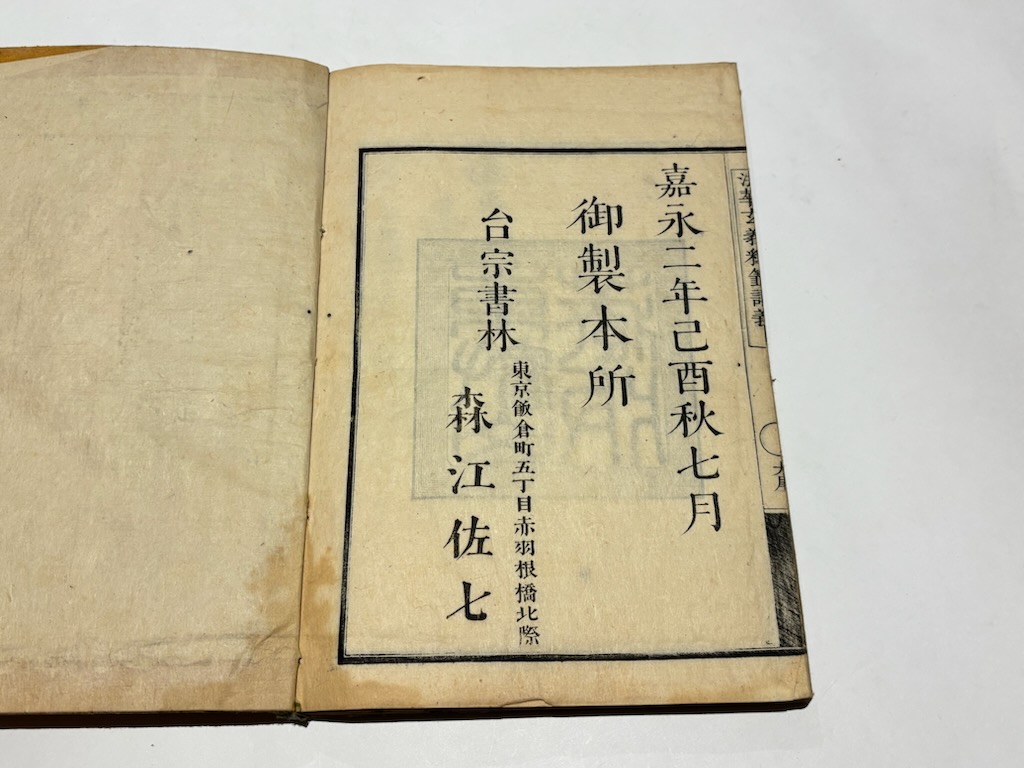 嘉永二年己酉秋七月
御製本所
台宗書林
東京飯倉町五丁目赤羽根橋北際
森江佐七
法華玄義釋籤講義